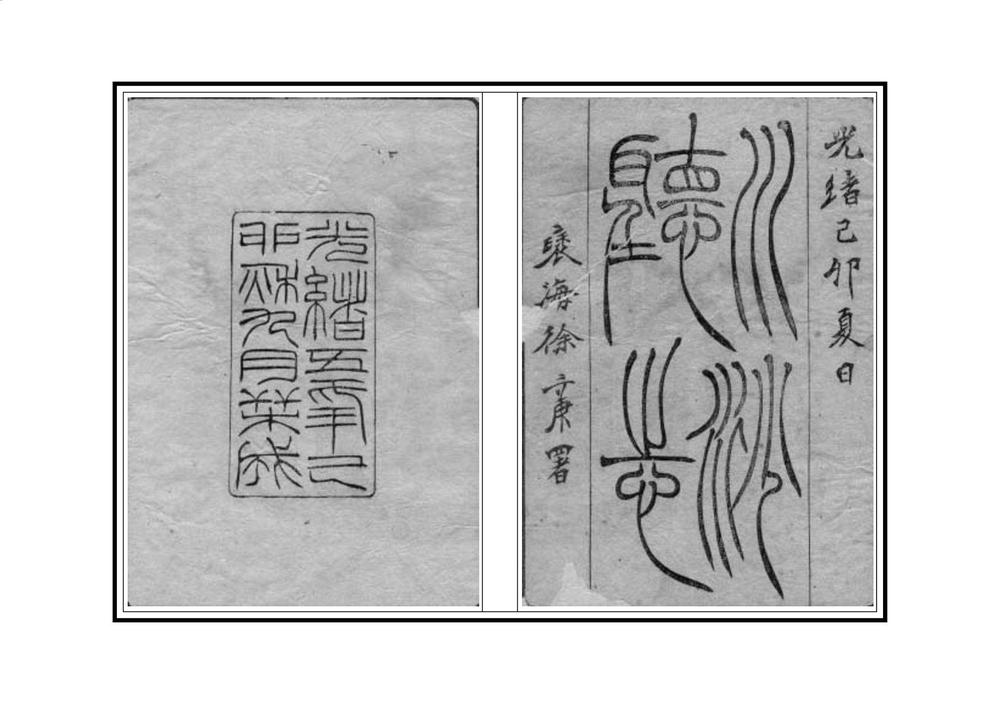 光緒己卯夏日
川沙
廳志
海徐署
光緒五年己
卯秋九月栞成